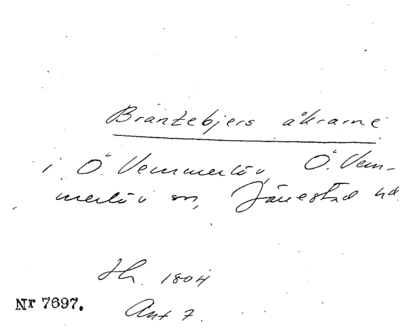 Bräntebjers åkrarne
i Ö. Vemmerlöv, Ö. Vem-
merlöv sn, Järrestad hd
Hh. 1804
Akt 7.
Nr 7697.